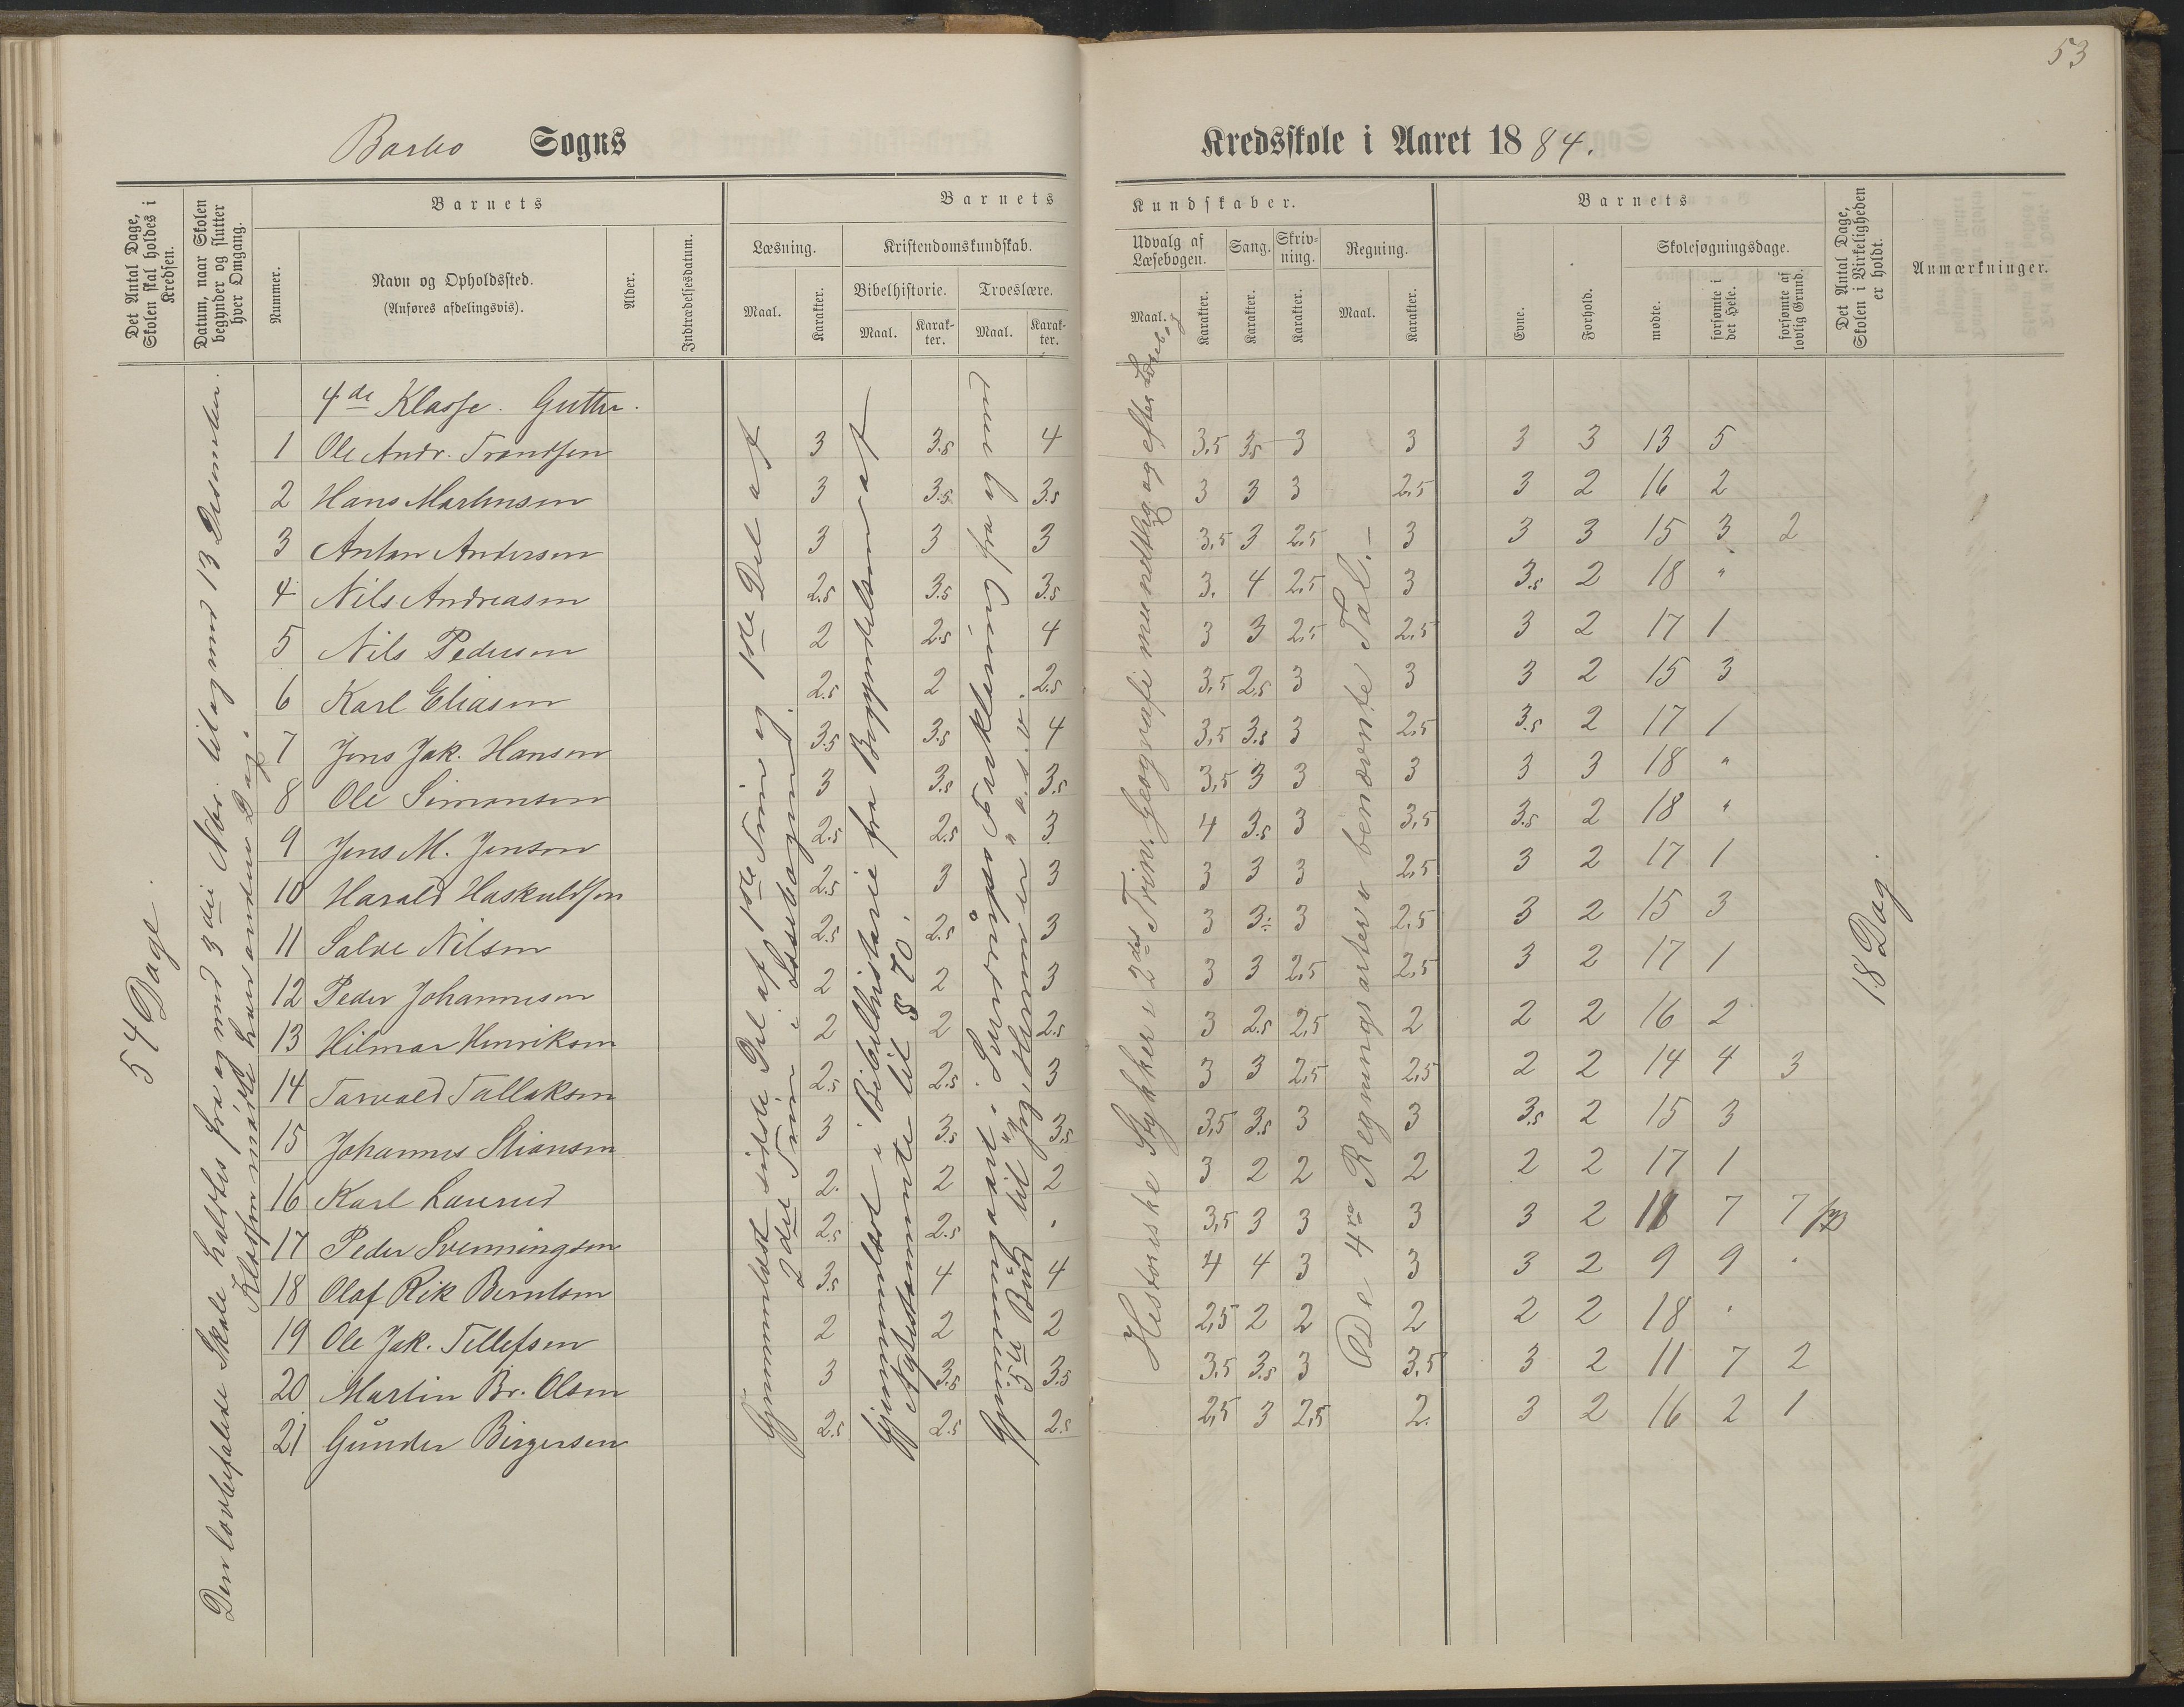 53
Barbo Sogns
Kredsskole i Aaret 1884.
Det Antal Dage, Skolen skal holdes i Kredsen.
Datum, naar Skolen begynder og slutter hver Omgang.
Barnets
Nummer.
Navn og Opholdssted.
(Anføres afdelingsvis).
Alder.
Indtrædelsesdatum.
Barnets
Læsning.
Maal.
Karakter.
Kristendomskundskab.
Bibelhistorie.
Maal.
Karakter.
Troeslære.
Maal.
Karakter.
Kundskaber.
Udvalg af Læsebogen.
Maal.
Karakter.
Sang.
Karakter.
Skrivning.
Karakter.
Regning.
Maal.
Karakter.
Barnets
Evne.
Forhold.
Skolesøgningsdage.
mødte.
forsømte i det Hele.
forsømte af lovlig Grund.
Det Antal Dage, Skolen i Virkeligheden er holdt.
Anmærkninger.
54 Dage.
Den lovbefalede Skole holdtes fra og med 3die Nbr. til og med 13 Desember.
Klassen mødte hver anden Dag.
4de Klasse. Gutter.
1 Ole Andr. Trondsen 3 3.5 4 3,5 3.5 3 3 3 3 13 5
2 Hans Martinsen 3 3.5 3.5 3 3 3 2,5 3 2 16 2
3 Anton Andersen 3 3 3 3,5 3 2,5 3 3 3 15 3 2
4 Nils Andreasen 2.5 3.5 3.5 3. 4 2,5 3 3.5 2 18 "
5 Nils Pedersen 2 2.5 4 3 3 2,5 2,5 3 2 17 1
6 Karl Eliasen 2.5 2 2.5 3,5 2.5 3 3 3 2 15 3
7 Jens Jak. Hansen 3.5 3.5 4 3,5 3.5 3 2,5 3.5 2 17 1
8 Ole Simonsen 3 3.5 3.5 3,5 3 3 3 3 3 18 "
9 Jens M. Jensen 2.5 2.5 3 4 3.5 3 3,5 3.5 2 18 "
10 Harald Haskuldsen 2.5 3 3 3 3 3 2,5 3 2 17 1
11 Salve Nilsen 2.5 2.5 3 3 3÷ 3 2,5 3 2 15 3
12 Peder Johannesen 2 2 3 3 3 2,5 2,5 3 2 17 1
13 Hilmar Henriksen 2 2 2.5 3 2.5 2,5 2 2 2 16 2
14 Torvald Tallaksen 2.5 2.5 3 3 3 2,5 2,5 2 2 14 4 3
15 Johannes Stiansen 3 3.5 3.5 3,5 3.5 3 3 3.5 2 15 3
16 Karl Laurud 2. 2 2 3 2 2 2 2 2 17 1
17 Peder Svenningsen 2.5 2.5 . 3,5 3 3 3 3 2 11 7 7
18 Olaf Rik Berntsen 3.5 4 4 4 4 3 3 3 2 9 9 .
19 Ole Jak. Tellefsen 2 2 2 2,5 2 2 2 2 2 18 .
20 Martin Br. Olsen 3 3.5 3.5 3,5 3.5 3 3,5 3 2 11 7 2
21 Gunder Birgersen 2.5 2.5 2.5 2,5 3 2,5 2. 3 2 16 2 1
Gjennemlæst sidste Del af 1ste Trin og 1ste Del af
2det Trin i Læsebogen.
Gjennemlæst i Bibelhistorie fra Begyndelsen af
Nytestamente til § 70.
Gjennemgaaet i Sverdrups Forklaring fra og med
5te Bud til
Historiske Stykker i 2det Trin. Geografi mundtlig og efter Læsebog
De 4re Regningsarter i benævnte Tal.
18 Dag.